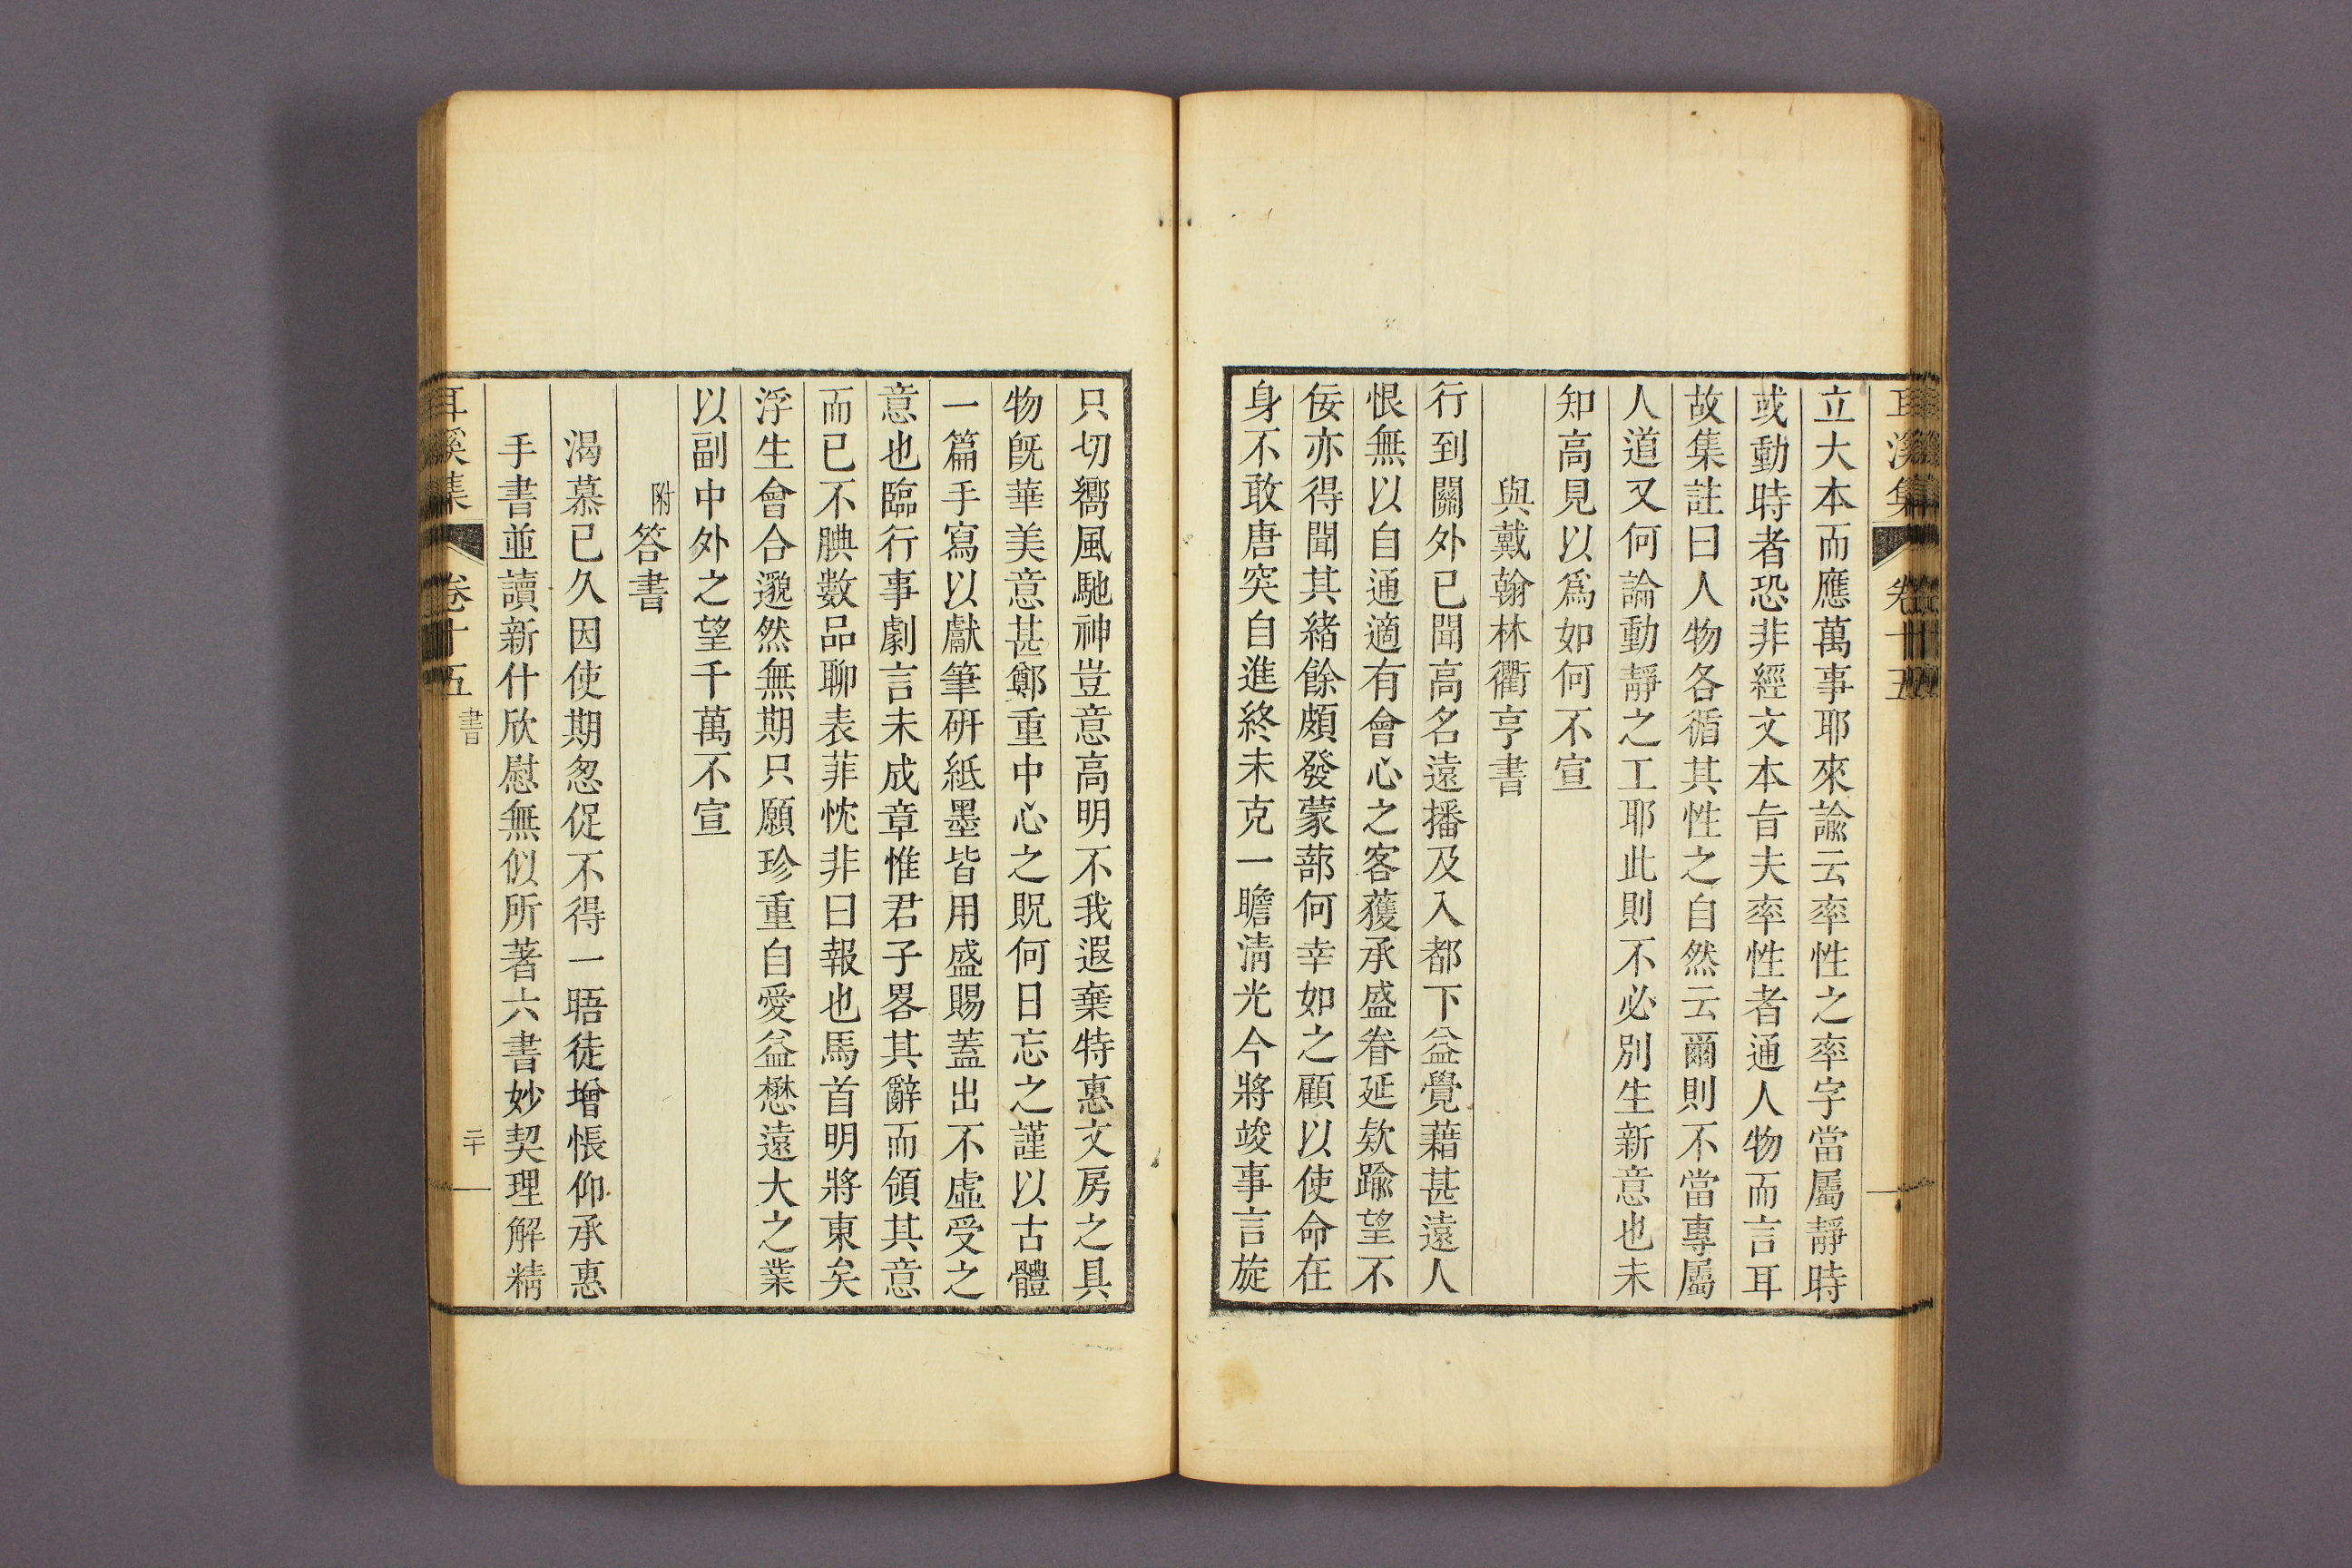 耳溪集 卷十五
立大本而應萬事耶來諭云率性之率字當屬靜時
或動時者恐非經文本旨夫率性者通人物而言耳
故集註曰人物各循其性之自然云爾則不當專屬
人道又何論動靜之工耶此則不必別生新意也未
知高見以爲如何不宣
與戴翰林衢亨書
行到關外已聞高名遠播及入都下益覺藉甚遠人
恨無以自通適有會心之客獲承盛眷延欵踰望不
佞亦得聞其緖餘頗發蒙蔀何幸如之顧以使命在
身不敢唐突自進終未克一瞻淸光今將竣事言旋
只切嚮風馳神豈意高明不我遐棄特惠文房之具
物旣華美意甚鄭重中心之貺何日忘之謹以古體
一篇手寫以獻筆硏紙墨皆用盛賜蓋出不虛受之
意也臨行事劇言未成章惟君子畧其辭而領其意
而已不腆數品聊表菲忱非曰報也馬首明將東矣
浮生會合邈然無期只願珍重自愛益懋遠大之業
以副中外之望千萬不宣
附答書
渴慕已久因使期忽促不得一晤徒增悵仰承惠
手書並讀新什欣慰無似所著六書妙契理解精
耳溪集 卷十五 書 二十